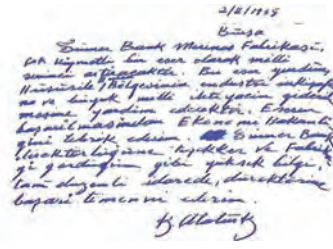 2/II/1938
Bursa
Sümer Bank Merinos Fabrikası,
çok kıymetli bir eser olarak milli
sevinci artıracaktır. Bu eser yurdun,
Hususile Bursa Bölgesinin endüstri inkişafı-
na ve büyük milli ihtiyacın gideril-
mesine yardım edecektir. Eserin
başarılmasından Ekonomi Bakanlı-
ğını tebrik ederim. Sümer Bank
direktörlüğüne teşekkür ve Fabrika-
yı gezdiğim gibi yüksek bilgi,
tam düzenli idarede, direktörüne
başarı temenni ederim.
K. Atatürk